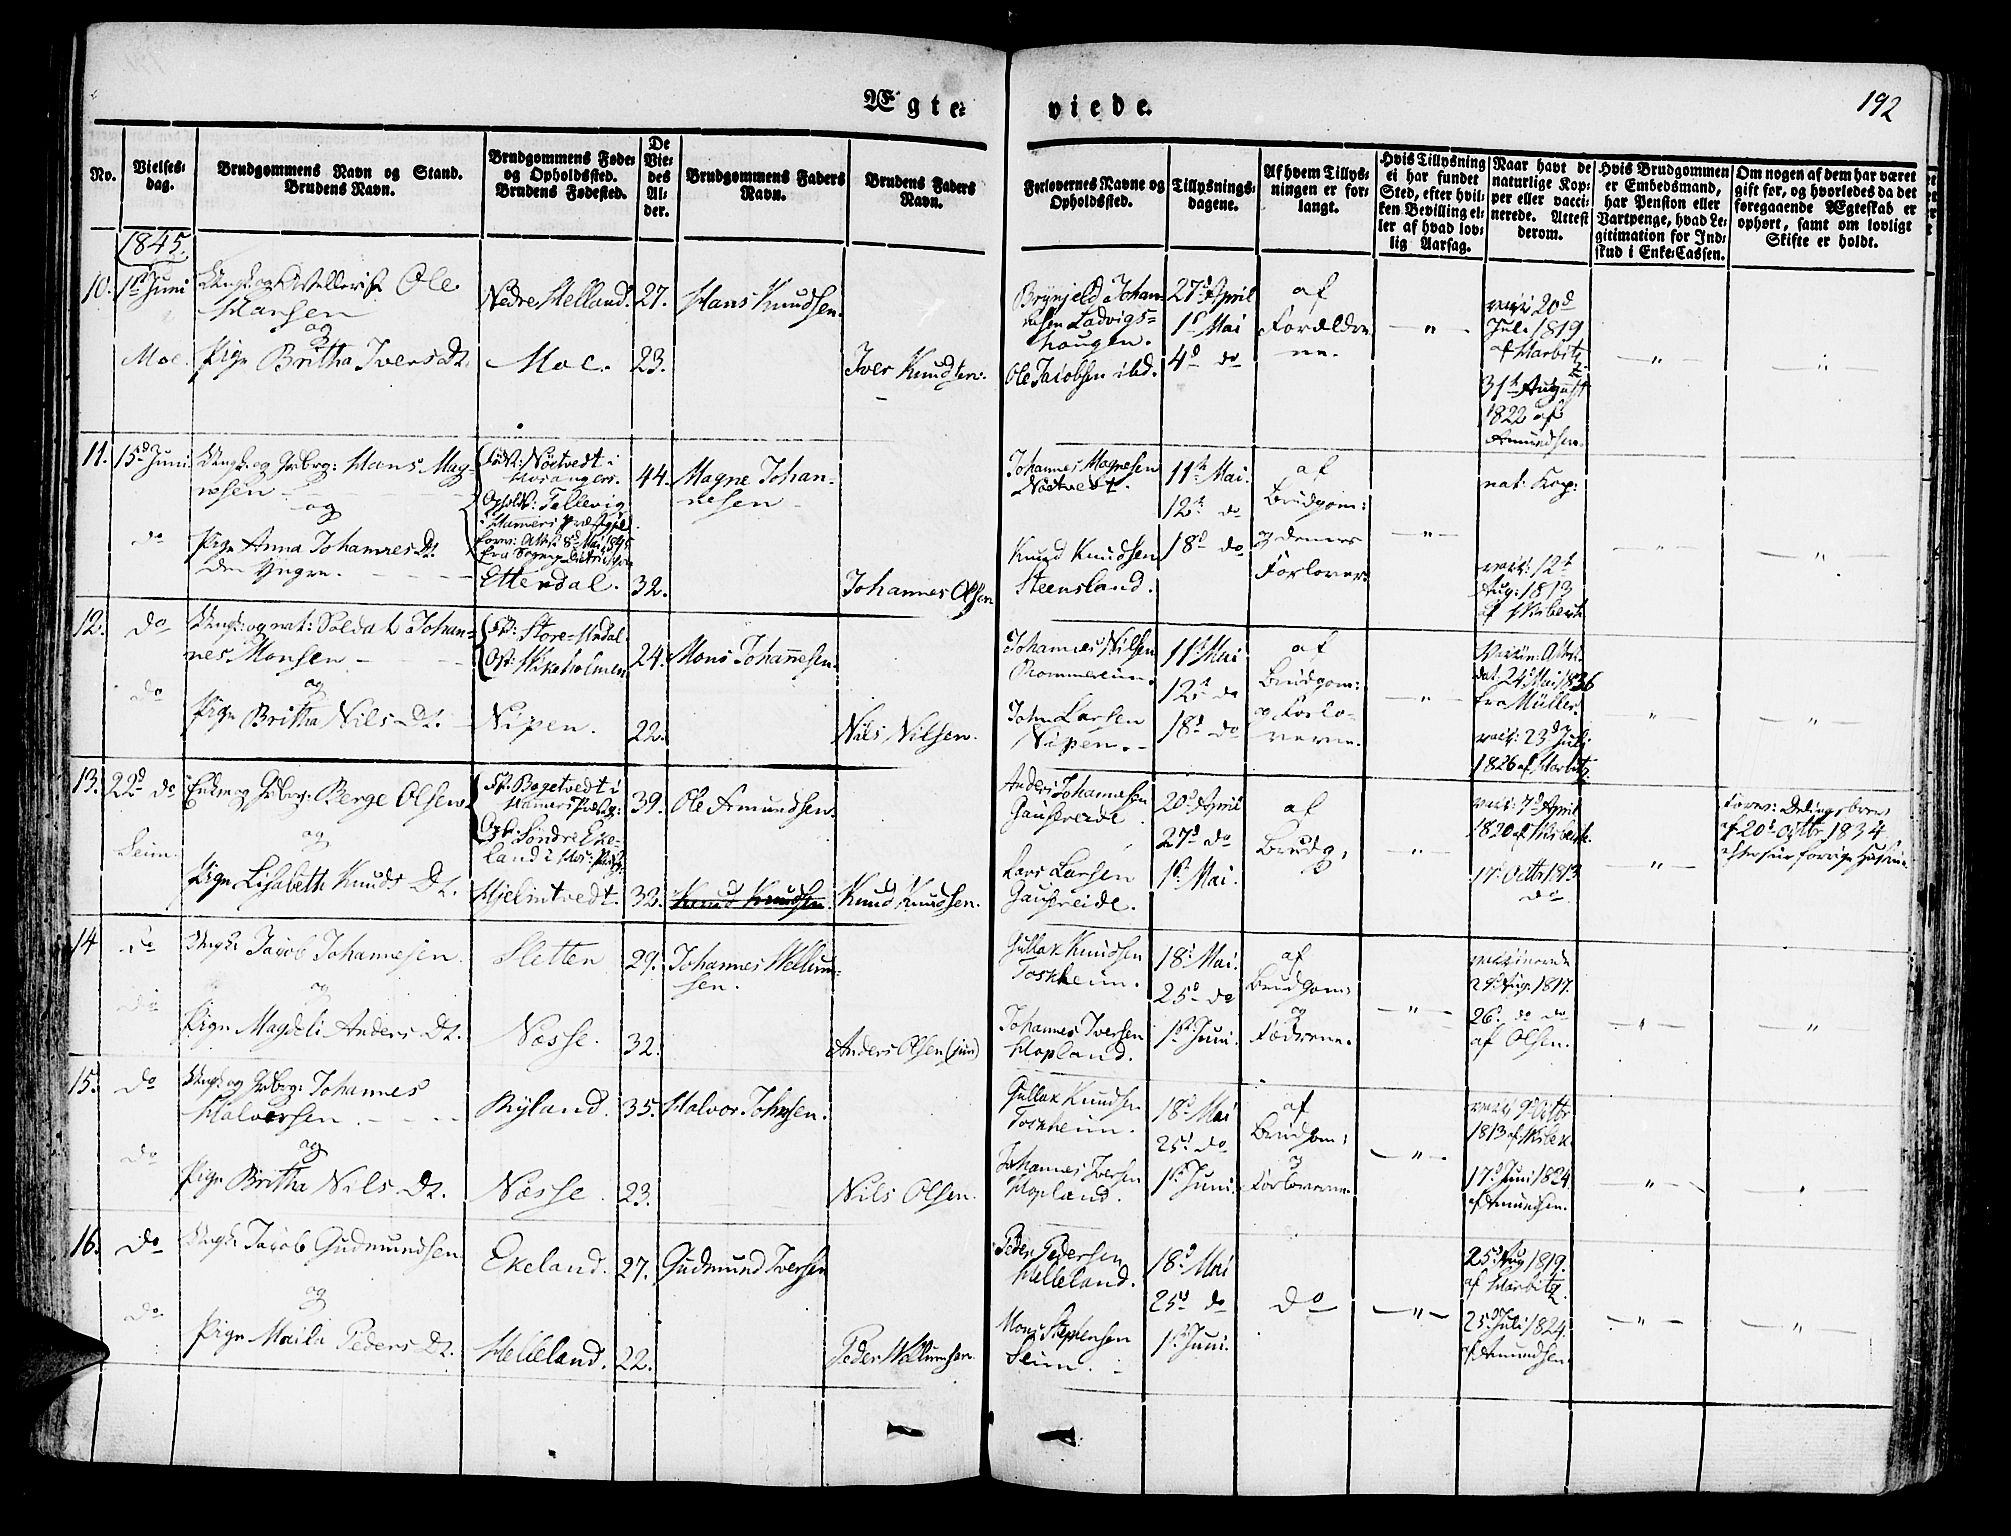 Ægte-
viede.
192
No.
Vielses-
dag.
Brudgommens Navn og Stand.
Brudens Navn.
Brudgommens Føde-
og Opholdssted.
Brudens Fødested.
De
Vie-
des
Al-
der.
Brudgommens Faders
Navn.
Brudens Faders
Navn.
Forlovernes Navne og
Opholdssted.
Tillysnings-
dagene.
Af hvem Tillys-
ningen er for-
langt.
Hvis Tillysning
ei har fundet
Sted, efter hvil-
ken Bevilling el-
ler af hvad lov-
lig Aarsag.
Naar havt de
naturlige Kop-
per eller vacci-
nerede. Attest
derom.
Hvis Brudgommen
er Embedsmand,
har Pension eller
Vartpenge, hvad Le-
gitimation for Ind-
skud i Enke-Cassen.
Om nogen af dem har været
gift før, og hvorledes da det
foregaaende Ægteskab er
ophørt, samt om lovligt
Skifte er holdt.
1845.
10. 1st Juni Ungk. og Ole Nedre Helland. 27. Hans Knudsen.
Hansen
og
Moe. Pige Britha Ivers Dt. Moe. 23. Iver Knudsen.
Brynjeld Johan-
nesen Ladvigs-
hougen.
Ole Jacobsen ibd.
27d April
1st Mai
4d do
af
Forældre-
ne.
vacc: 20d
Juli 1819
af Harbitz
31te August
1822 af
Amundsen.
11. 15d Juni Ungk. og Grbrg: Hans Mag-
nesen
og
do Pige Anna Johannes Dt.
den Yngre.
Født: Nøtvedt i
Hosanger.
Opholds: Tellevig
i Hammers Præstgjeld
Ettendal.
44. Magne Johan-
nesen
32. Johannes Olsen
Johannes Magnesen
Nøtvedt.
Knud Knudsen
Steensland.
11te Mai.
12te do
18d do
af
Brudgom:
og dennes
Forlover.
nat: Kop:
vacc: 12t
Aug: 1813
12. do Ungk: og nat: Soldat Johan-
nes Monsen
og
do Pige Britha Nils Dt.
Fst: Store-Undal
Nipen.
24. Mons Johannesen.
22. Nils Nilsen.
Johannes Nilsen
John Larsen
Nipen.
11te Mai
12te do
18d do
af
Brudgom:
og Forlo-
verne.
Vaccin: Att:
dat. 24d Mai 1836
fra Müller.
vacc: 23d Juli
1826 af Harbitz
13. 22d do Enkem. og Grbrg: Berge Olsen
og
Seim. Pige Lisabeth Knuds Dt.
Fst: Bogetvedt i
Hammers Præstg:
Oph: Søndre Eke-
land i Hos: Præstg:
Hjelmtvedt.
39. Ole Amundsen.
32. Knud Knudsen. Knud Knudsen.
Anders Johannesen
Lars Larsen
20d April
27d do
1st Mai.
af
Brudg:
vacc: 7d April
17. Octbr 1813
do
af 20d Octbr 1834
14 do Ungk: Jacob Johannesen
og
do Pige Magdeli Anders Dt.
Sletten
Næsse.
29. Johannes Wellum-
sen.
32. Anders Olsen (jun)
Gullak Knudsen
Toskheim.
Johannes Iversen
Hopland.
18d Mai.
25d do
1st Juni.
af
Brudgom:
og
Fædrene.
vaccinerede
29d Aug: 1817.
26d do do
af Olsen.
15. do Ungk. og Grbrg: Johannes
Halversen
og
do Pige Britha Nils Dt.
Ryland.
Næsse
35. Halvor Johnsen.
23. Nils Olsen.
Gullak Knudsen
Toskheim.
Johannes Iversen
Hopland.
18d Mai
25d do
1st Juni.
af
Brudgom:
og
Forloverne.
vacc: 9d Octbr
17d Juni 1824.
af Amundsen.
16. do Ungk. Jacob Gudmundsen
og
do. Pige Marta Peders Dt.
Ekeland.
Helleland.
27. Gudmund Iversen
22. Peder Wellumsen.
Peder Pedersen
Helleland.
Mons Stephensen
Seim.
18d Mai
25d do
1st Juni.
do
25d Aug 1819.
af Harbitz.
25d Juli 1824.
af Amundsen.